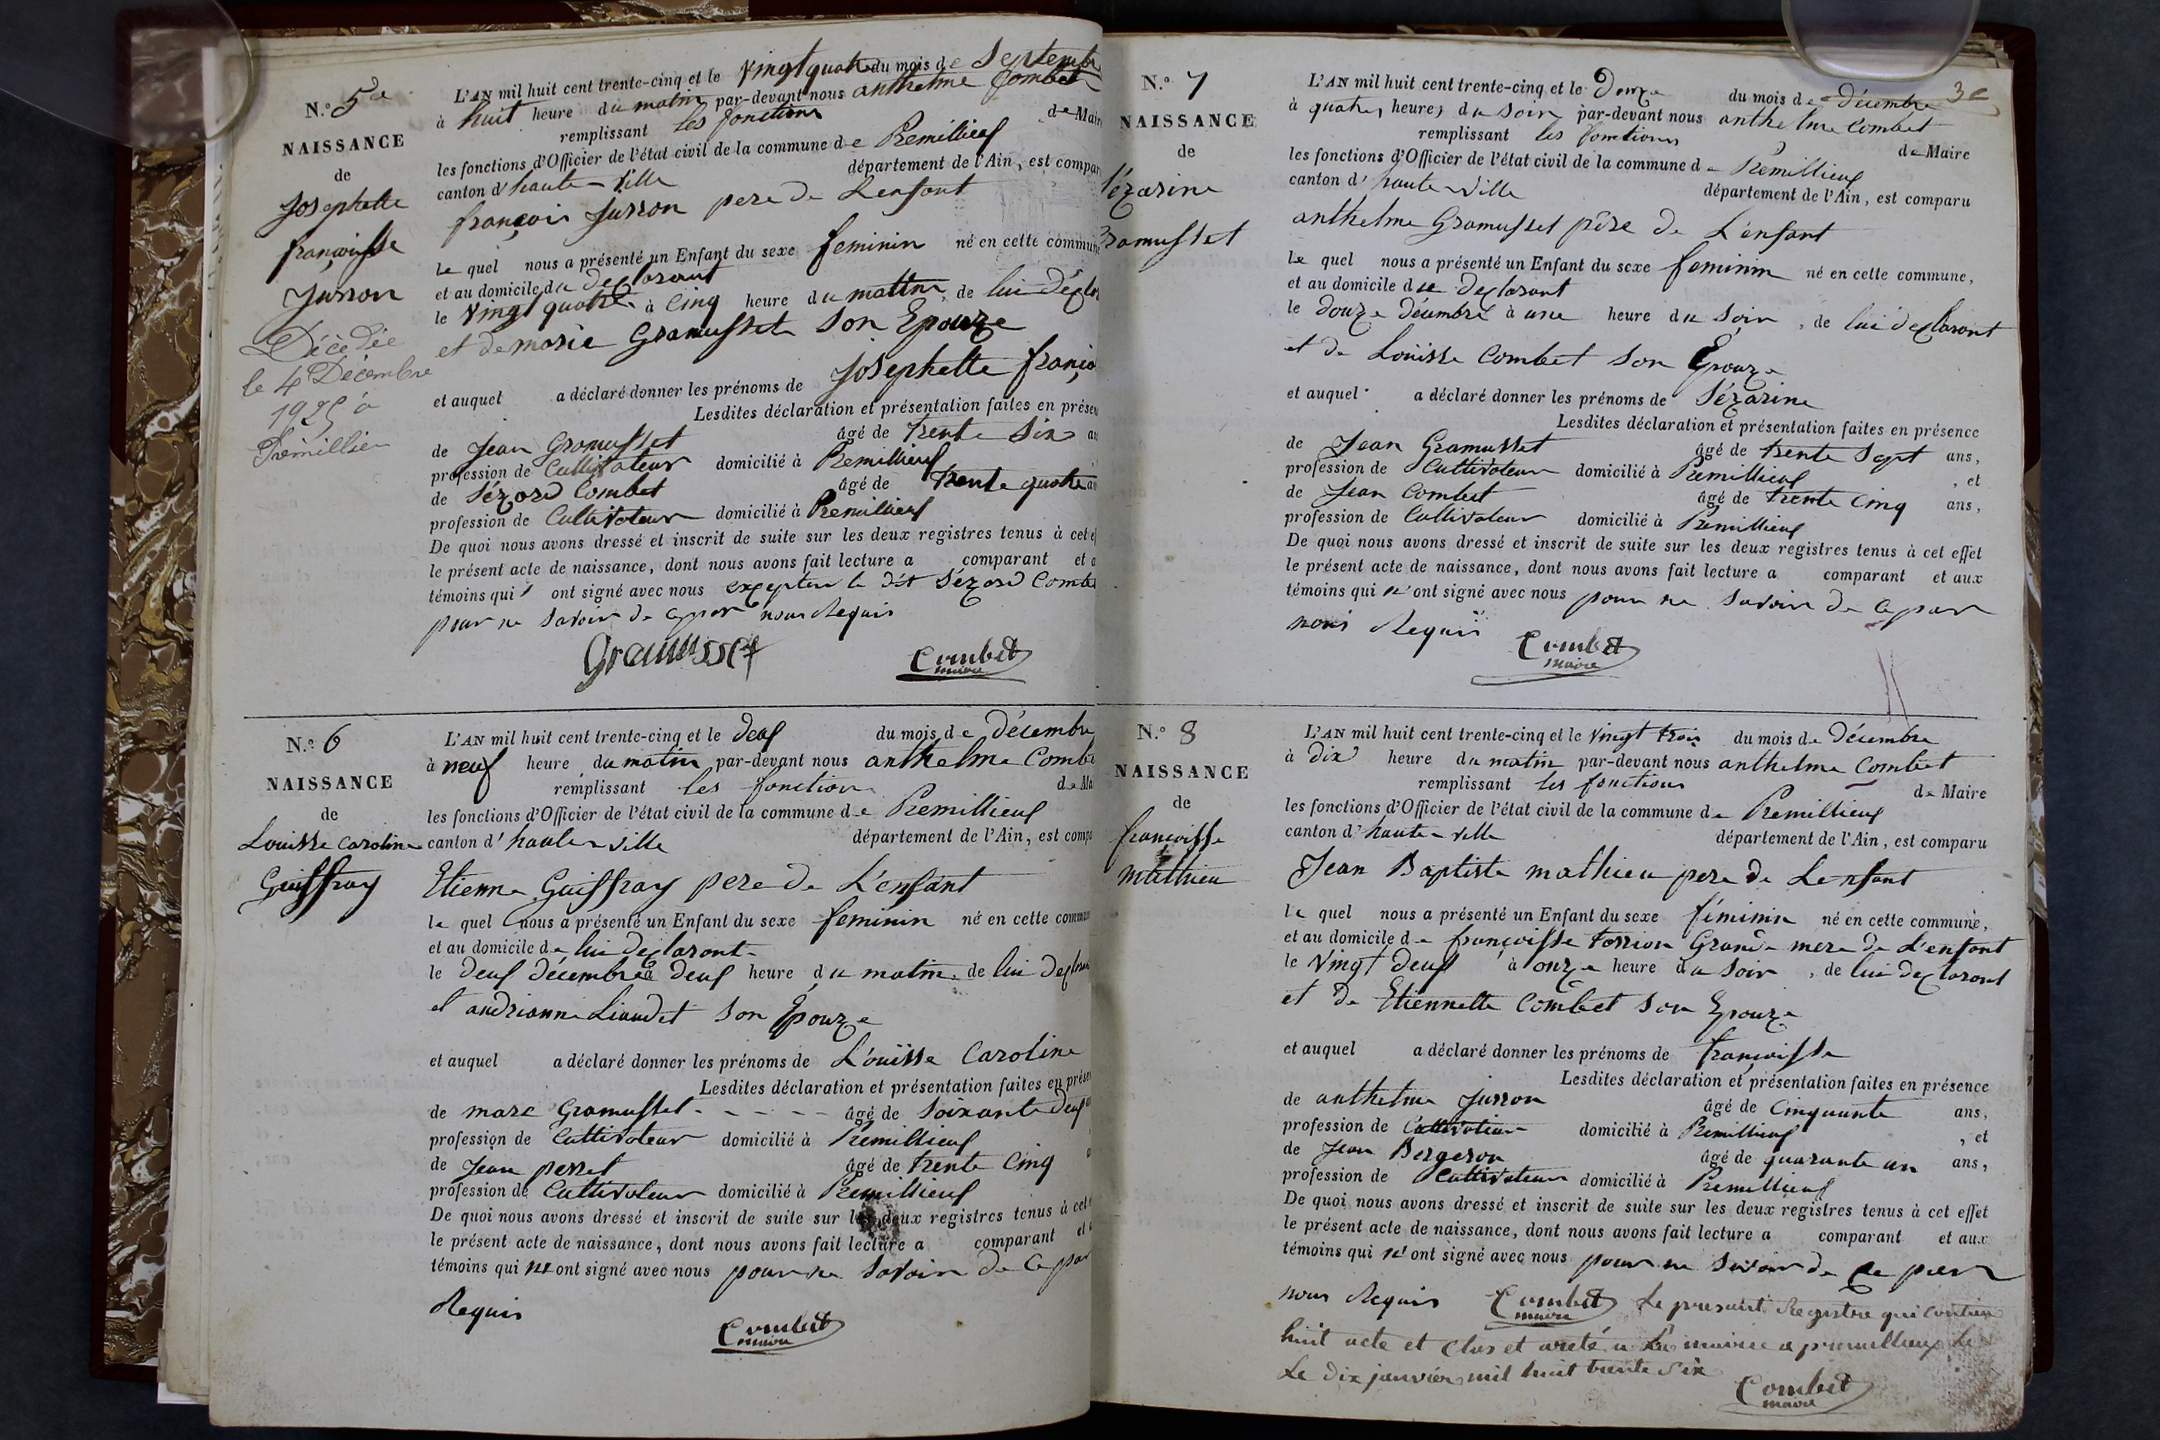 N.o 5e
NAISSANCE
de
Josephette
françoisse
Jurron
Décédée
le 4 Décembre
1925 à
Prémillieu
L'AN mil huit cent trente-cinq et le vingt quatre du mois de Septembr
à huit heure du matin par-devant nous anthelme Combet
remplissant les fonctions de Mair
les fonctions d'Officier de l'état civil de la commune de Premillieux
canton d'haute-ville département de l'Ain, est compar
françois Jurron pere de Lenfant
le quel nous a présenté un Enfant du sexe feminin né en cette commun
et au domicile du declarant
le vingt quatre à cinq heure du matin, de lui décla
et de marie Gramusset son Epouze
et auquel a déclaré donner les prénoms de Josephette franço
Lesdites déclaration et présentation faites en prése
de Jean Gramusset âgé de trente six an
profession de Cultivateur domicilié à Premillieux
de Sézard Combet âgé de trente quatre an
profession de Cultivateur domicilié à Premillieux
De quoi nous avons dressé et inscrit de suite sur les deux registres tenus à cet ef
le présent acte de naissance, dont nous avons fait lecture a comparant et a
témoins qui ont signé avec nous excepteu le dit Sézard Combe
pour ne savoir de ce par nous Requis
Gramusset Combet
maire
N.o 6
NAISSANCE
de
Louisse Caroline
Guiffray
L'AN mil huit cent trente-cinq et le deux du mois de décembre
à neuf heure du matin par-devant nous anthelme Combe
remplissant les fonction de Ma
les fonctions d'Officier de l'état civil de la commune de Premillieux
canton d'haute-ville département de l'Ain, est compa
Etienne Guiffray pere de L'enfant
le quel nous a présenté un Enfant du sexe feminin né en cette commun
et au domicile de lui declarant
le deux décembre à deux heure du matin, de lui declara
et andrianne Liaudet son Epouze
et auquel a déclaré donner les prénoms de L'ouïsse Caroline
Lesdites déclaration et présentation faites en prése
de marc Gramusset - - - - - âgé de soixante deux
profession de Cultivateur domicilié à Premillieux
de Jean perret âgé de trente cinq
profession de Cultivateur domicilié à Premillieux
De quoi nous avons dressé et inscrit de suite sur les deux registres tenus à cet
le présent acte de naissance, dont nous avons fait lecture a comparant et
témoins qui ne ont signé avec nous pour ne savoir de ce par
Requis
Combet
maire
3e
N.o 7
NAISSANCE
de
Sézarine
Gramusset
L'AN mil huit cent trente-cinq et le Douze du mois de décembre
à quatre heures du soir par-devant nous anthelme Combet
remplissant les fonctions de Maire
les fonctions d'Officier de l'état civil de la commune de Premillieux
canton d'haute-ville département de l'Ain, est comparu
anthelme Gramusset père de L'enfant
le quel nous a présenté un Enfant du sexe feminin né en cette commune,
et au domicile due declarant
le douze décembre à une heure du soir, de lui declaront
et de Louisse Combet son Epouze
et auquel a déclaré donner les prénoms de Sézarine
Lesdites déclaration et présentation faites en présence
de Jean Gramusset âgé de trente sept ans,
profession de Cultivateur domicilié à Premillieux, et
de Jean Combet âgé de trente cinq ans,
profession de Cultivateur domicilié à Premillieux
De quoi nous avons dressé et inscrit de suite sur les deux registres tenus à cet effet
le présent acte de naissance, dont nous avons fait lecture a comparant et aux
témoins qui n'ont signé avec nous pour ne savoir de ce par
nous Requis
Combet
maire
N.o 8
NAISSANCE
de
françoisse
Mathieu
L'AN mil huit cent trente-cinq et le vingt trois du mois de décembre
à dix heure du matin par-devant nous anthelme Combet
remplissant les fonctions de Maire
les fonctions d'Officier de l'état civil de la commune de Premillieux
canton d'haute-ville département de l'Ain, est comparu
Jean Baptiste mathieu pere de Lenfant
le quel nous a présenté un Enfant du sexe féminin né en cette commune,
et au domicile de françoisse Grande mere de L'enfant
le vingt deux à onze heure du soir, de lui declaront
et de Etiennette Combet son Epouze
et auquel a déclaré donner les prénoms de françoisse
Lesdites déclaration et présentation faites en présence
de anthelme Jurron âgé de Cinquante ans,
profession de Cultivateur domicilié à Premillieux, et
de Jean Bergeron âgé de quarante un ans,
profession de Cultivateur domicilié à Premillieux
De quoi nous avons dressé et inscrit de suite sur les deux registres tenus à cet effet
le présent acte de naissance, dont nous avons fait lecture a comparant et aux
témoins qui n'ont signé avec nous pour ne savoir de ce par
nous Requis Combet maire Le presant Registre qui contien
huit acte et clos et areté a La mairie a premillieux le
Le dix janvier mil huit trente six
Combet
maire